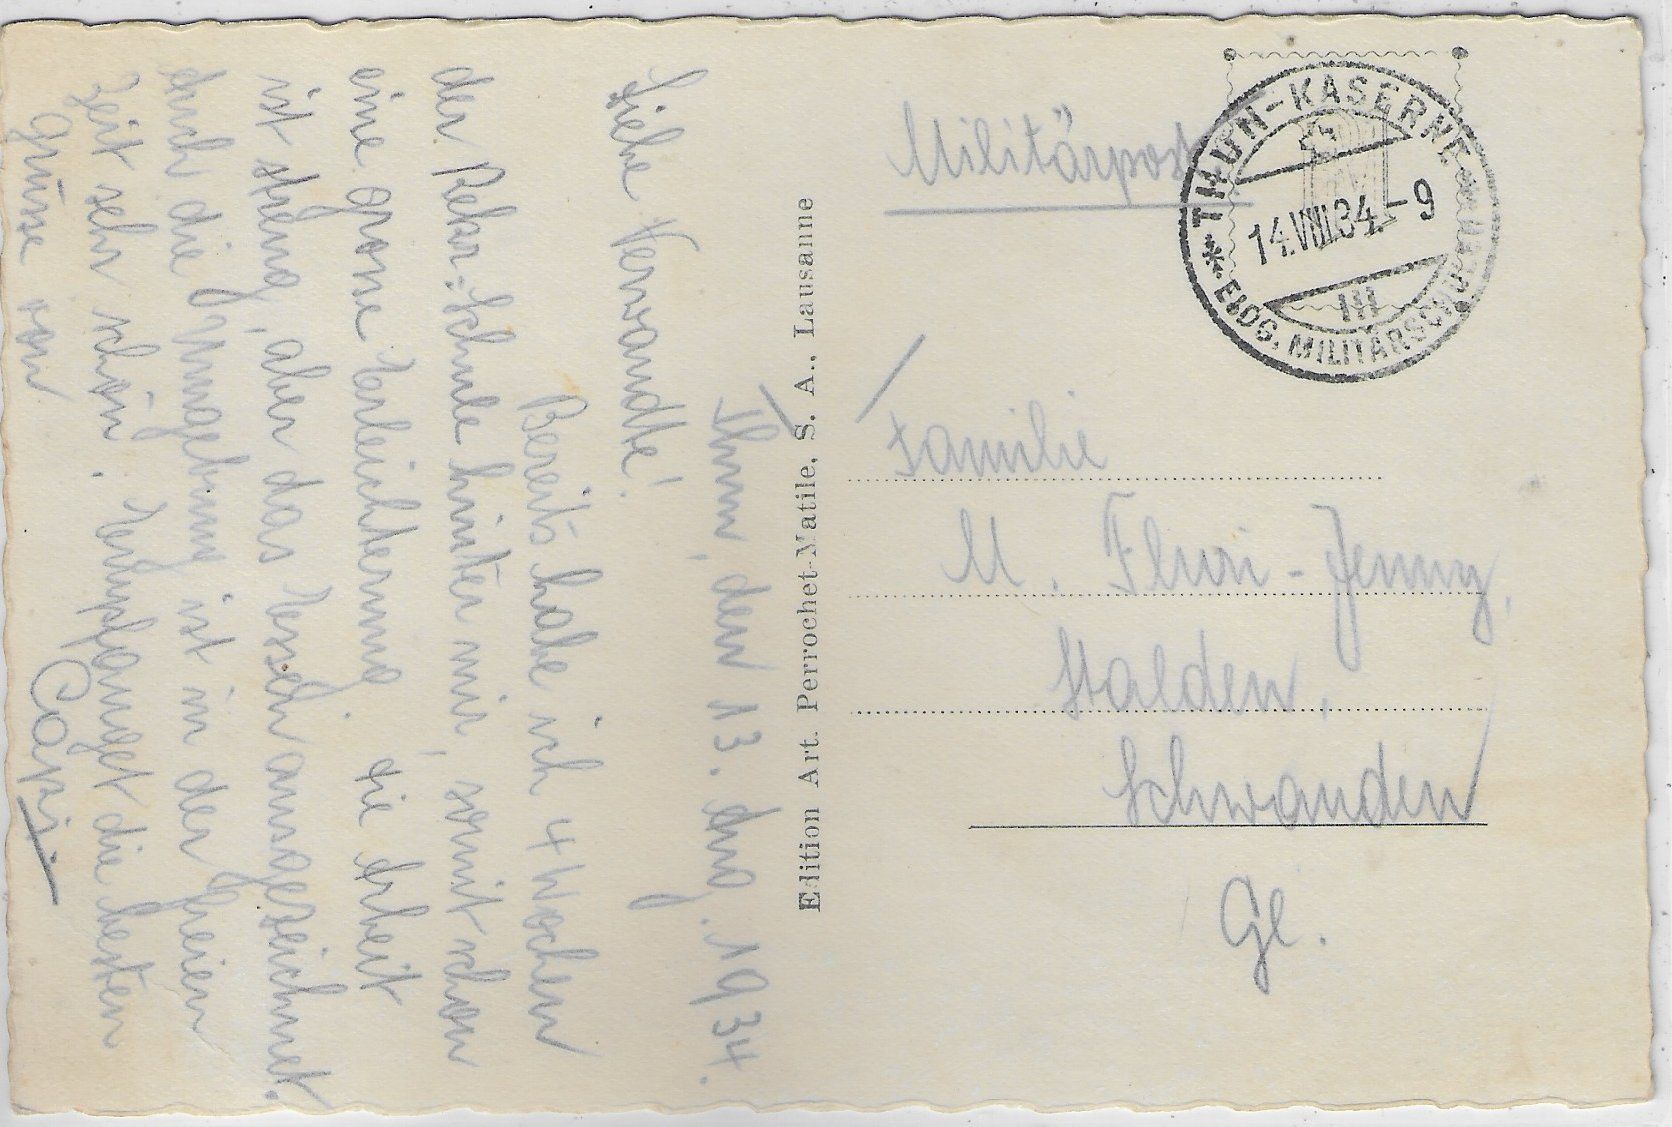 Thun, den 13. Aug. 1934.
Liebe Verwandte!
Bereits habe ich 4 Wochen
der Rekr=Schule hinter mir, somit schon
eine grosse Erleichterung. Die Arbeit
ist streng, aber das Essen ausgezeichnet.
Auch die Umgebung ist in der freien
Zeit sehr schön. Empfanget die besten
Grüsse von
Edition Art. Perrochet-Matile, S. A., Lausanne
Militärpost
THUN-KASERNE
14.VIII.34.-9
III
* EIDG. MILITÄRSCHULEN
Familie
M. Fluri-Jenny,
Stalden,
Schwanden
Gl.